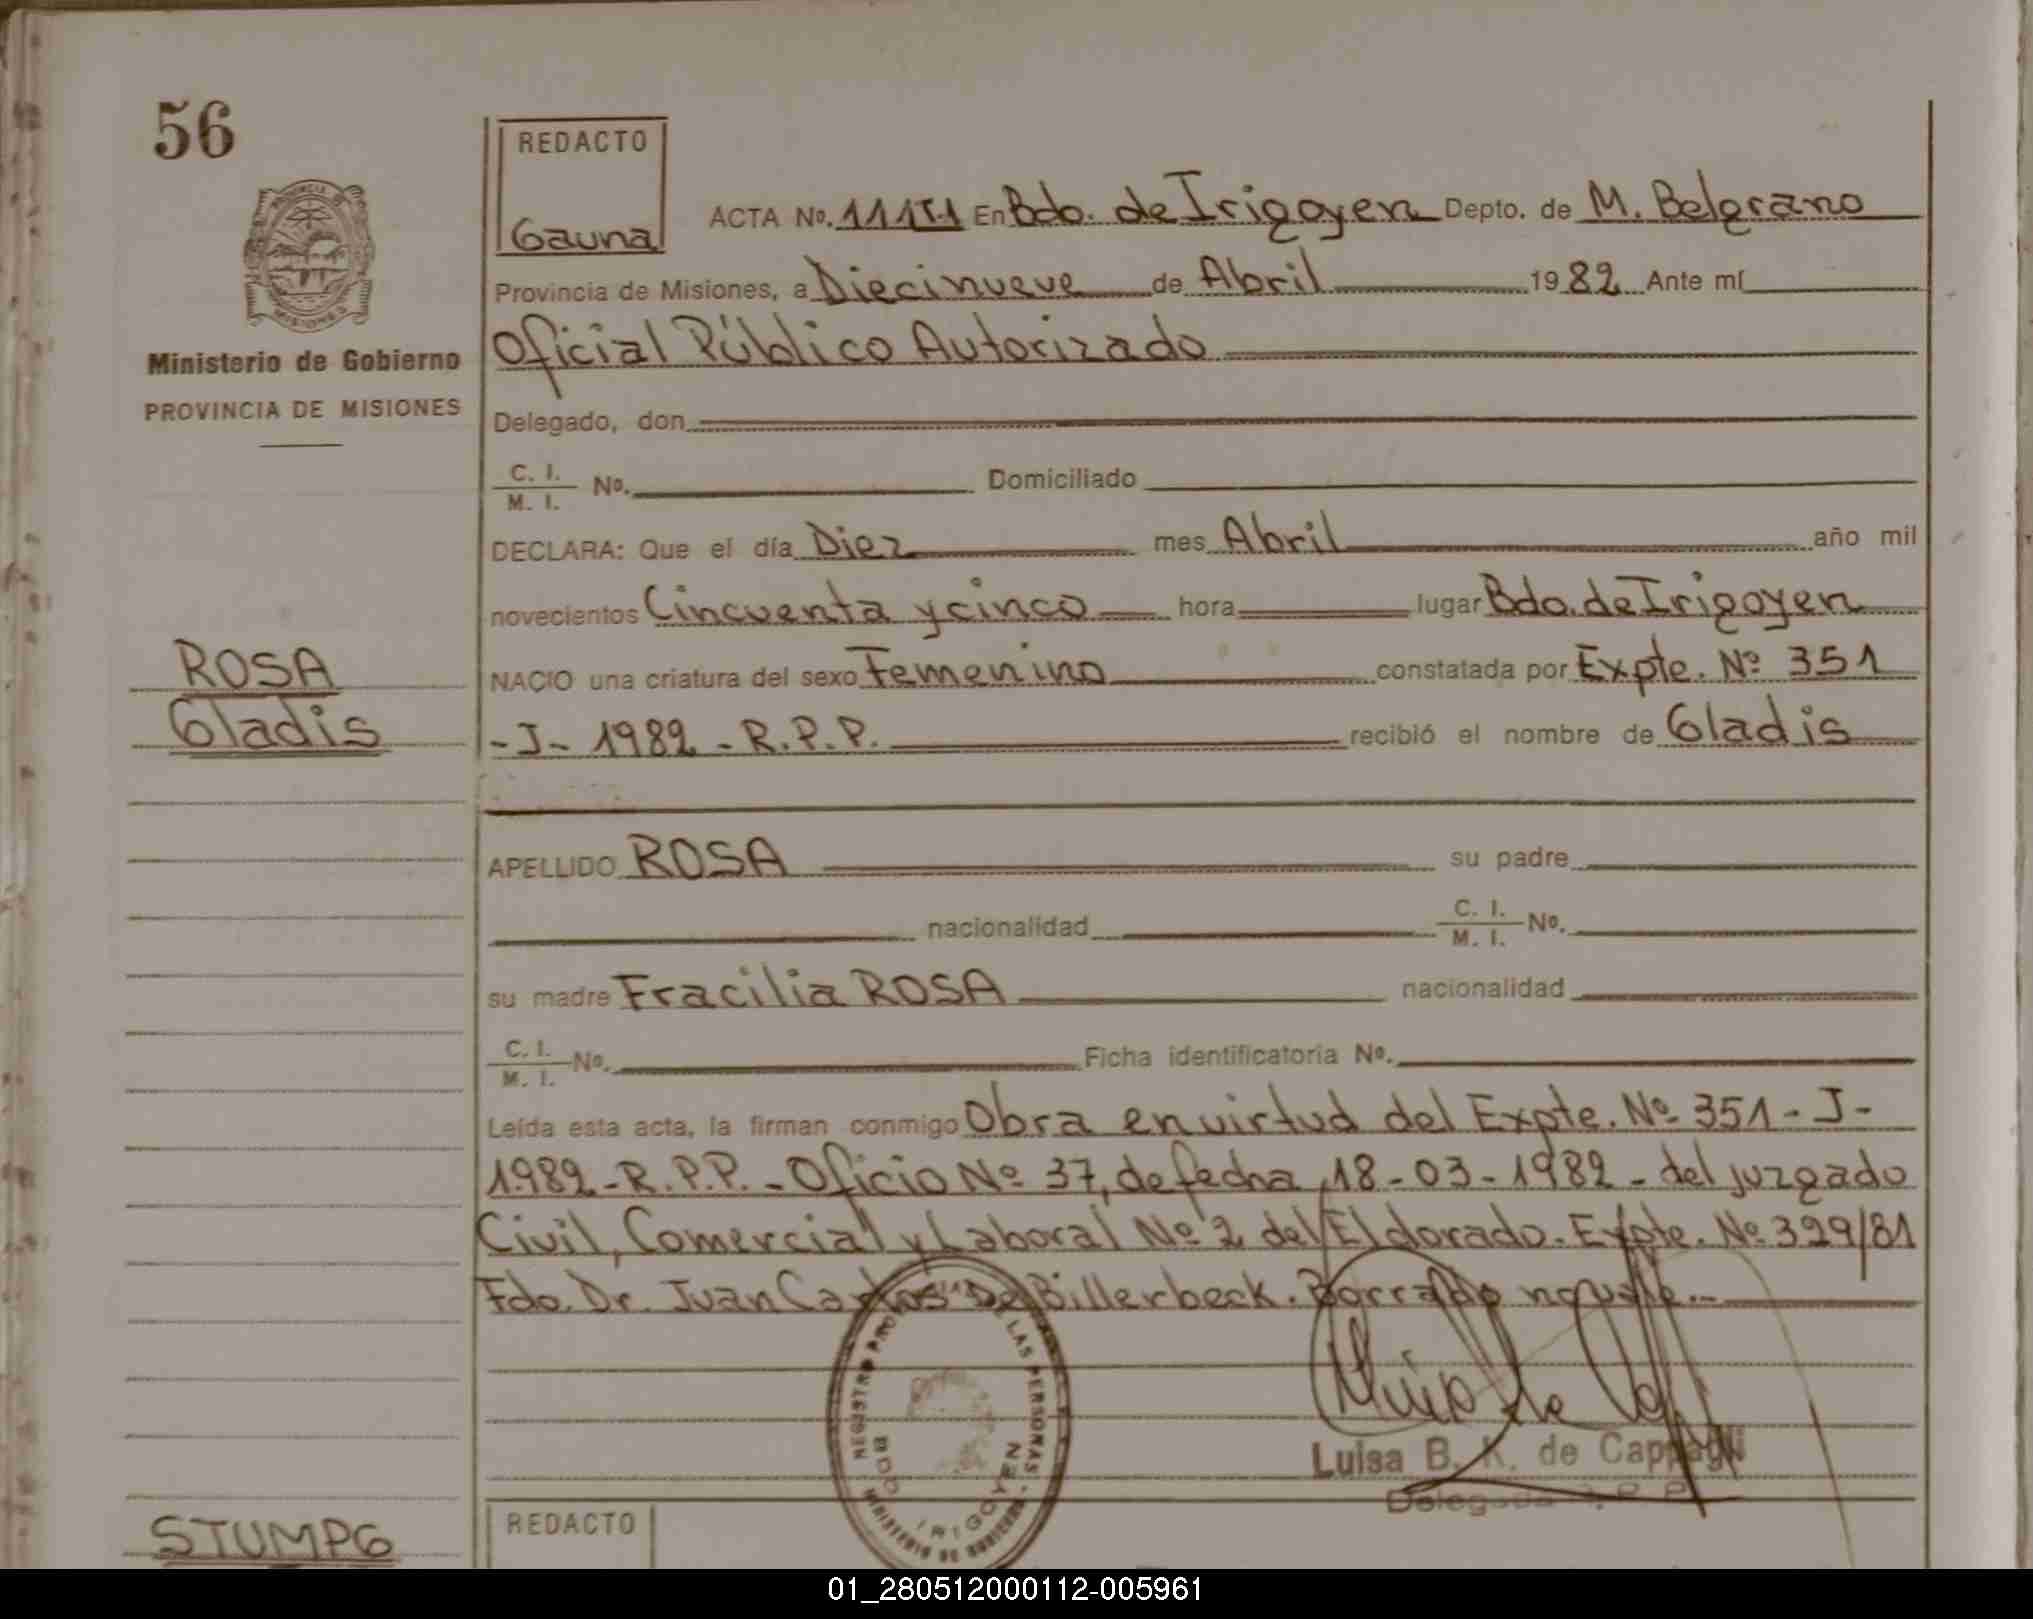 56
REDACTO
Gauna
ACTA No. En Bdo. de Irigoyen Depto. de M. Belgrano
Provincia de Misiones, a Diecinueve de Abril 1982 Ante mí
Oficial Público Autorizado
Ministerio de Gobierno
PROVINCIA DE MISIONES
Delegado, don
C. I. / M. I. No. Domiciliado
DECLARA: Que el día Diez mes Abril año mil
novecientos Cincuenta y cinco hora lugar Bdo. de Irigoyen
ROSA
Gladis
NACIO una criatura del sexo Femenino constatada por Expte. Nº 351
-J- 1982 - R.P.P. recibió el nombre de Gladis
APELLIDO ROSA su padre
nacionalidad C. I. / M. I. No.
su madre Fracilia ROSA nacionalidad
C. I. / M. I. No. Ficha identificatoria No.
Leída esta acta, la firman conmigo Obra en virtud del Expte. Nº 351 - J -
1982 - R.P.P. - Oficio Nº 37, de fecha 18 - 03 - 1982 - del juzgado
Civil, Comercial y Laboral Nº 2 del Eldorado. Expte. Nº 329/81
Fdo. Dr. Juan Carlos De Billerbeck. Borrado no vale.-
REGISTRO PROV. DE LAS PERSONAS - MINISTERIO DE GOBIERNO
BDO IRIGOYEN
Luisa B. K. de Cappagli
Delegada R. P. P.
STUMPG
REDACTO
01_280512000112-005961